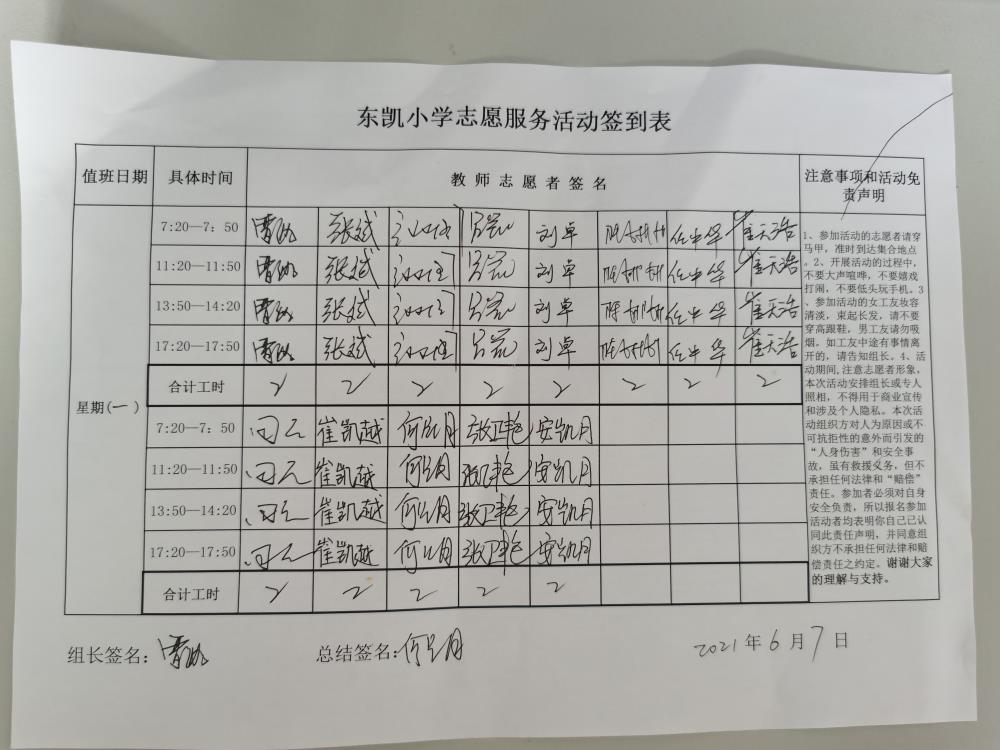 东凯小学志愿服务活动签到表
值班日期 具体时间 教师志愿者签名 注意事项和活动免责声明
星期(一)
7:20—7:50 张斌 刘卓 任中华 崔天浩
11:20—11:50 张斌 刘卓 任中华 崔天浩
13:50—14:20 张斌 刘卓 任中华 崔天浩
17:20—17:50 张斌 刘卓 任中华 崔天浩
合计工时 2 2 2 2 2 2 2 2
7:20—7:50 崔凯越 安凯月
11:20—11:50 崔凯越 安凯月
13:50—14:20 崔凯越 安凯月
17:20—17:50 崔凯越 安凯月
合计工时 2 2 2 2 2
1、参加活动的志愿者请穿
马甲，准时到达集合地点
。2、开展活动的过程中，
不要大声喧哗，不要嬉戏
打闹，不要低头玩手机。3
、参加活动的女工友妆容
清淡，束起长发，请不要
穿高跟鞋，男工友请勿吸
烟。如工友中途有事情离
开的，请告知组长。4、活
动期间,注意志愿者形象，
本次活动安排组长或专人
照相，不得用于商业宣传
和涉及个人隐私。本次活
动组织方对人为原因或不
可抗拒性的意外而引发的
“人身伤害”和安全事
故，虽有救援义务，但不
承担任何法律和“赔偿”
责任。参加者必须对自身
安全负责，所以报名参加
活动者均表明你自己已认
同此责任声明，并同意组
织方不承担任何法律和赔
偿责任之约定。谢谢大家
的理解与支持。
组长签名： 总结签名： 2021年6月7日